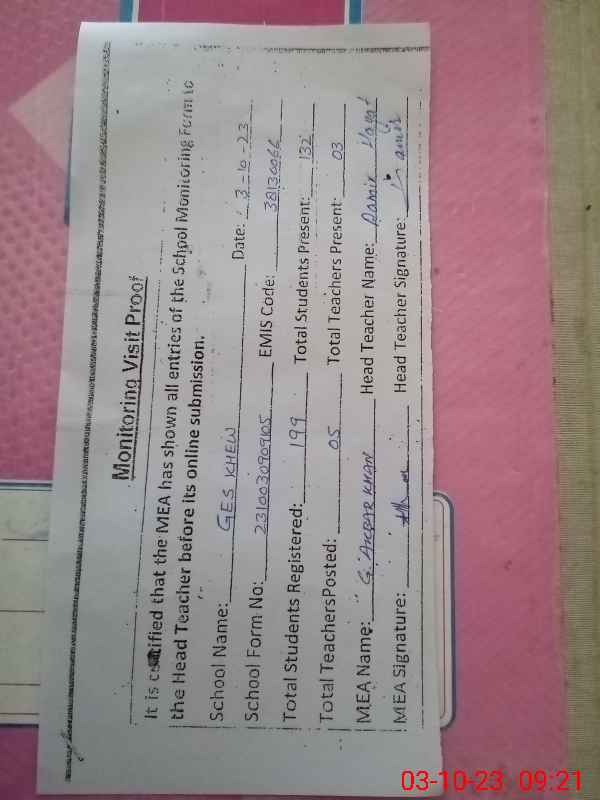 Monitoring Visit Proof
It is certified that the MEA has shown all entries of the School Monitoring Form to
the Head Teacher before its online submission.
School Name: GES KHEW Date: 3-10-23
School Form No: 231003090905 EMIS Code: 38130066
Total Students Registered: 199 Total Students Present: 132
Total TeachersPosted: 05 Total Teachers Present: 03
MEA Name: G. AKBAR KHAN Head Teacher Name: Hayat
MEA Signature: Head Teacher Signature:
03-10-23 09:21